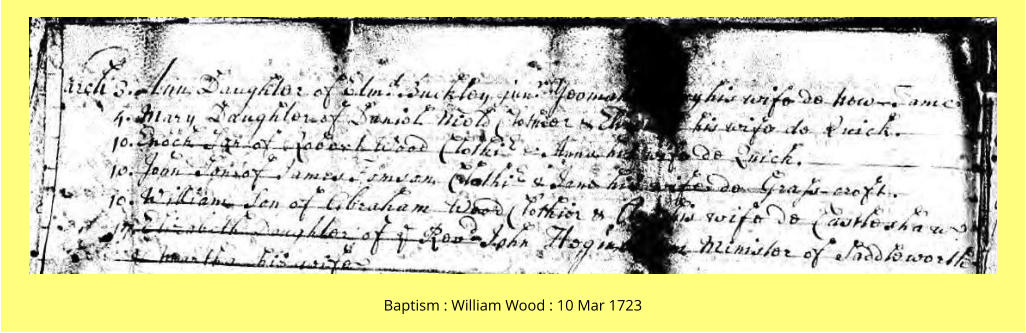 arch 3. Ann Daughter of Edmd Buckley junr Yeoman his wife de New Tame
4. Mary Daughter of Daniel Clothier & his wife de Quick.
10. Enoch Son of Robert Wood Clothier & Ann his wife de Quick.
10. John Son of James Clothir & Jane his wife de Grasscroft.
10. William Son of Abraham Wood Clothier & his wife de Castleshaw
Elizabeth Daughter of ye Revd John Minister of Saddleworth
& Martha his wife
Baptism : William Wood : 10 Mar 1723